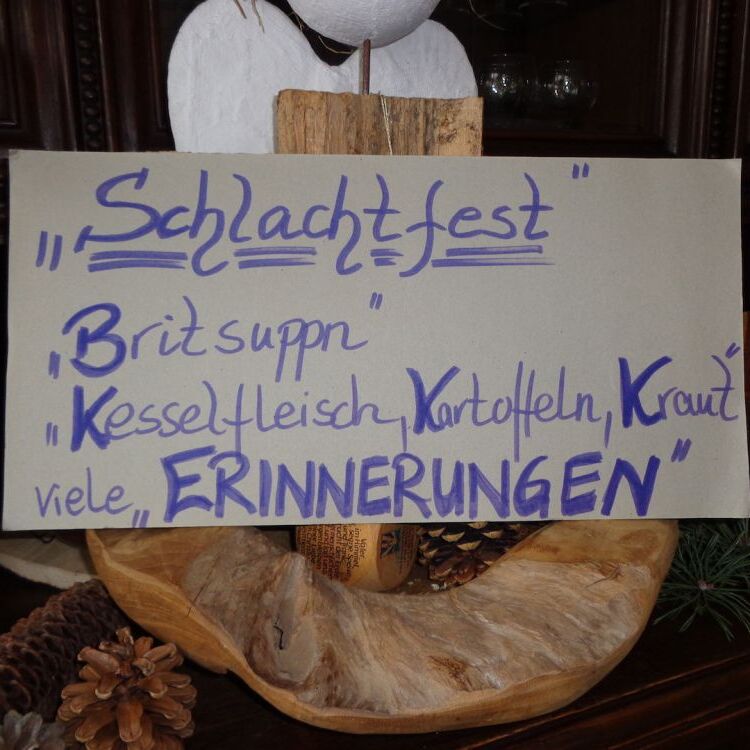 „Schlachtfest"
„Britsuppn"
„Kesselfleisch, Kartoffeln, Kraut"
viele „ERINNERUNGEN"